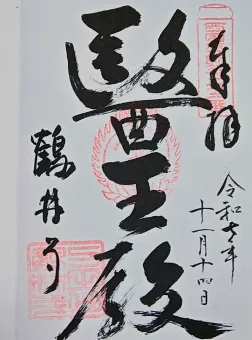 奉拝
令和七年
十一月十四日
醫王殿
鶴林寺